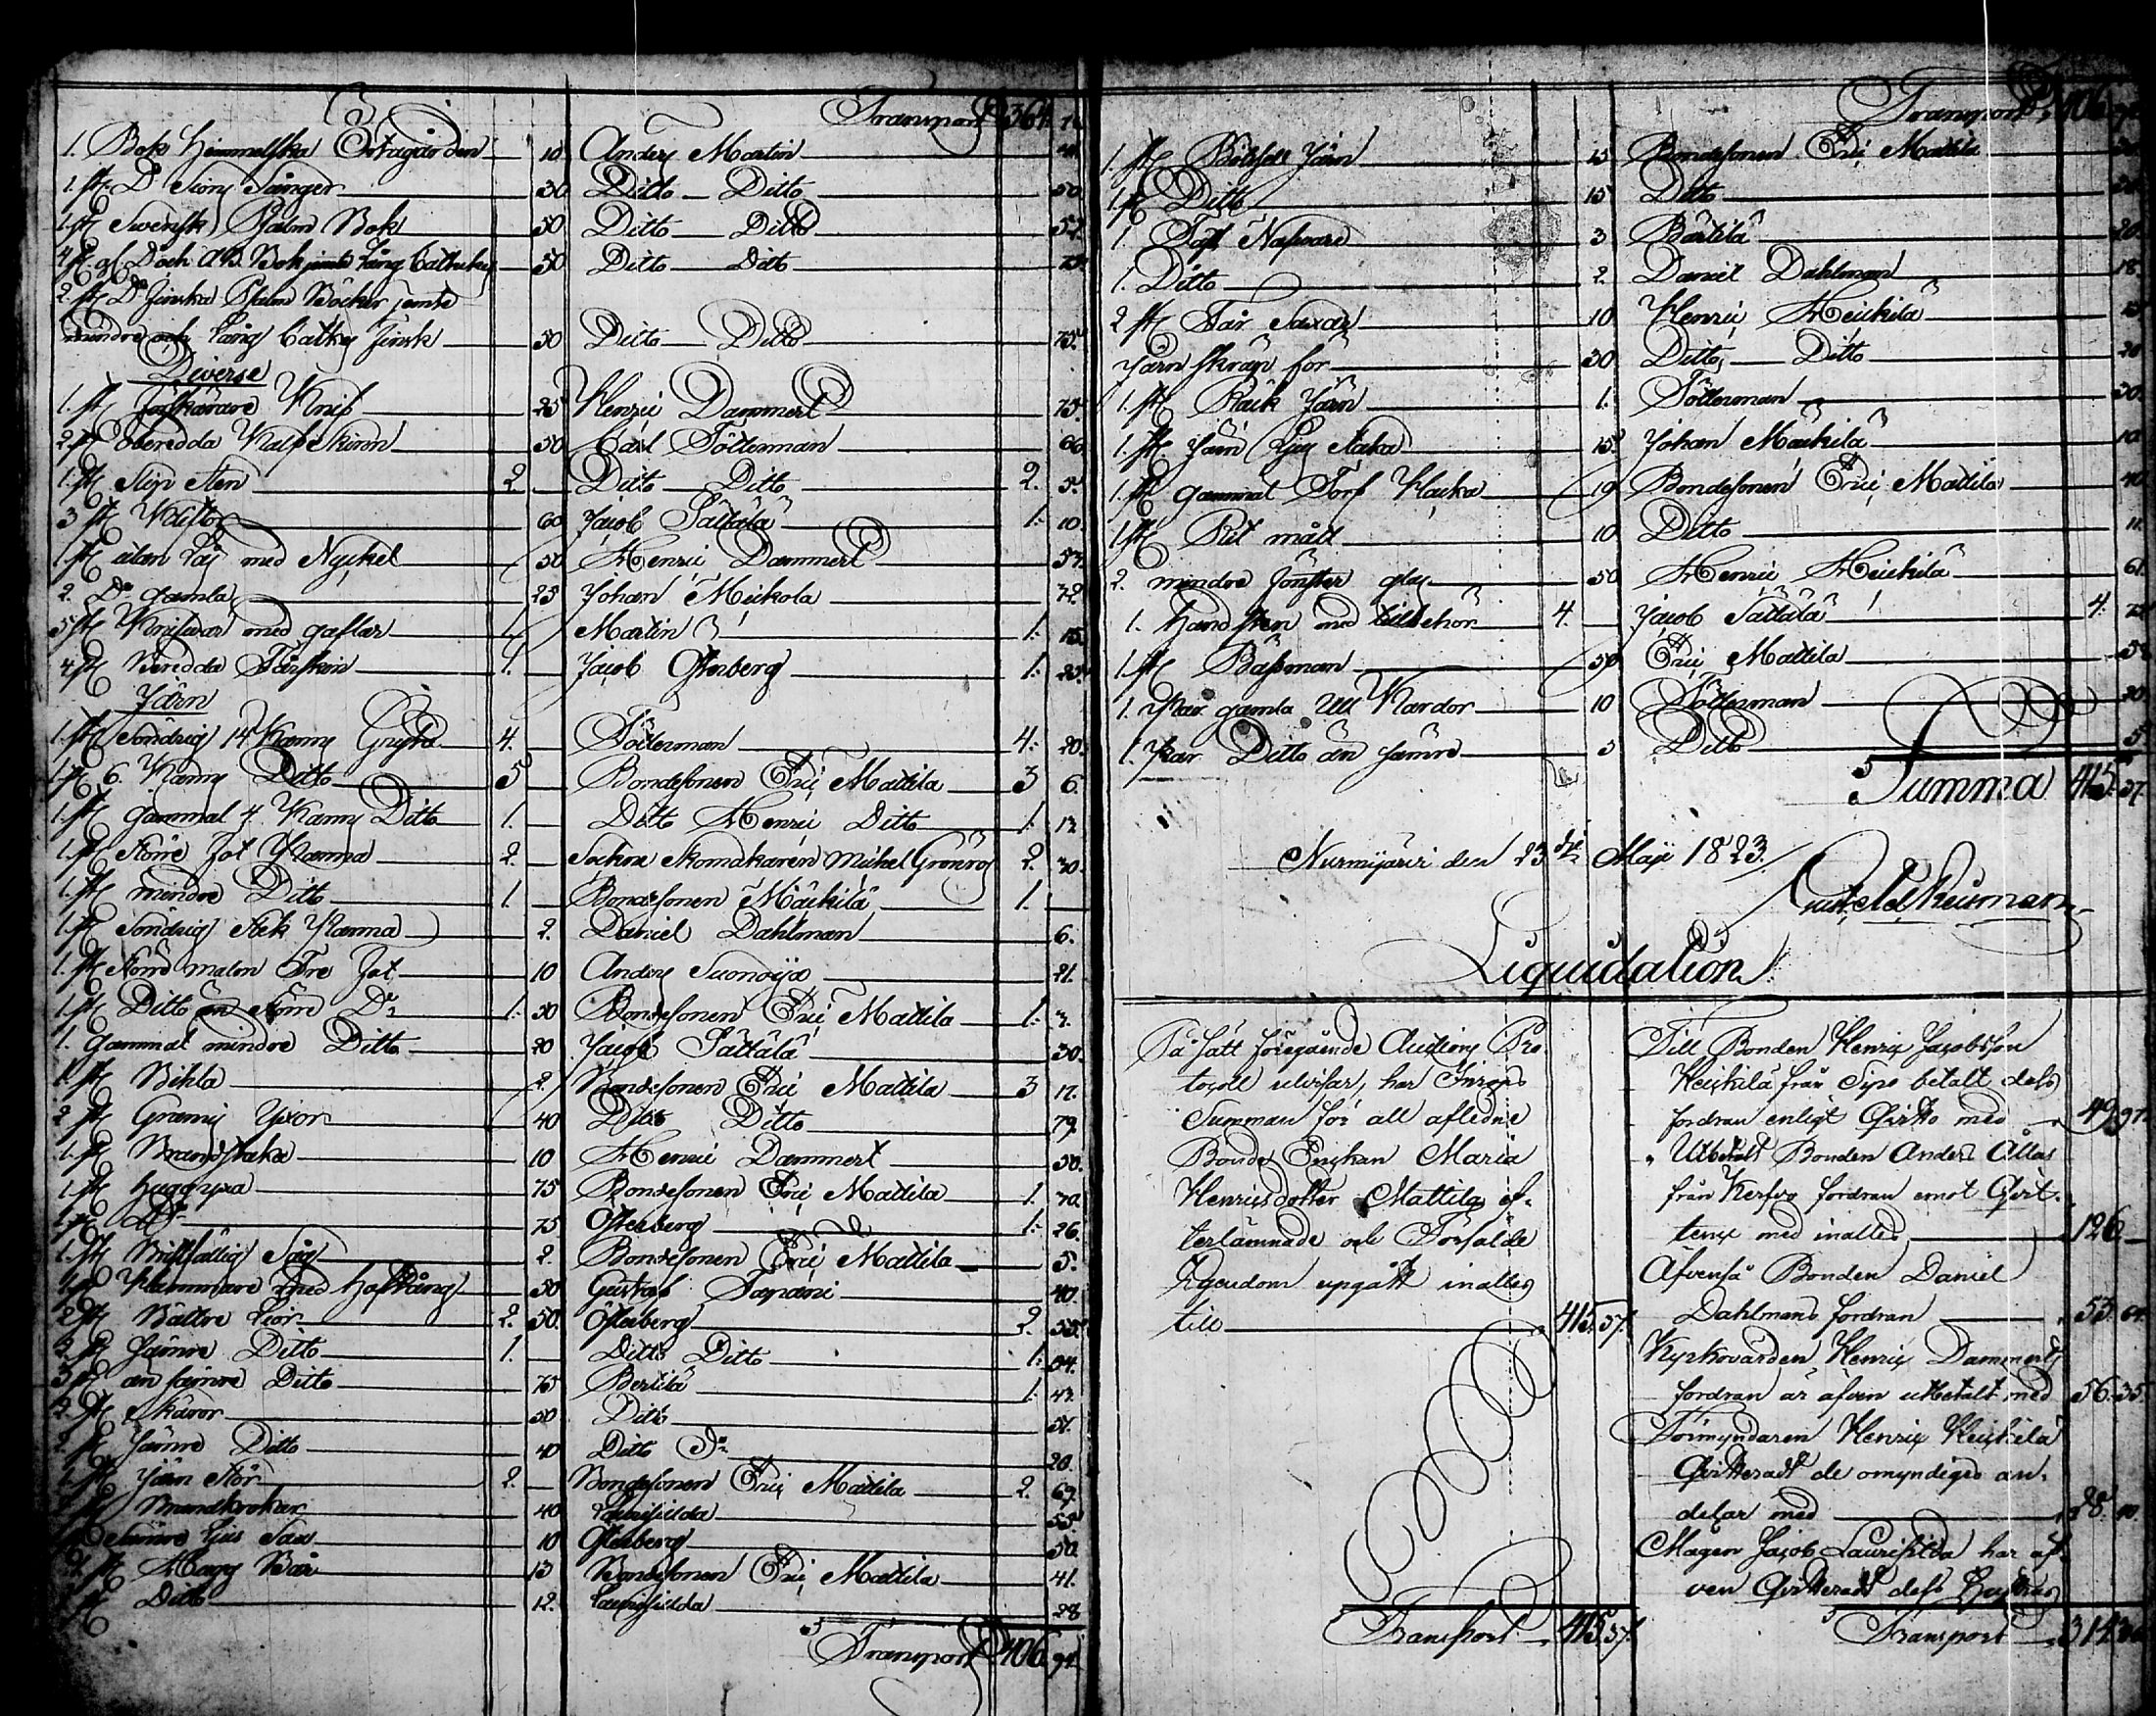 Transport 364.
1. Bok Himmelska Örtagården 10 Anders Martin
1. st. Do Sions Sånger 30 Ditto Ditto 50
1. st. Swensk Psalm Bok 50 Ditto Ditto 57.
50 Ditto Ditto
2. st. Do Finska Psalm Böcker jemte
mindre och Lång Cathes Finsk 50 Ditto Ditto 75.
Diverse
1. st. Knif 25 Henric Dammert 75.
2. st. oberedda Kalf Skinn 50 Carl Fötterman 60
1. st. Slip Sten 2. Ditto Ditto 2. 5.
3 st. 60 Jacob Sättälä 1. 10.
1. st. utan Lås med Nyckel 50 Henric Dammert 57.
2. Do gamla 25 Johan Meickola 72.
5 st. Knifwar med gaflar 1. Martin 1. 15.
4 st. Beredda Fårskin 1. Jacob Osterberg 1. 25.
Järn
1. st. Söndrig 14 Kanns Gryta 4. Fötterman 4. 20.
1. st. 6. Kanns Ditto 3 Bondesonen Eric Mattila 3 6.
1. st. gammal 4. Kanns Ditto 1. Ditto Henric Ditto 1. 12.
1. st. Större Fot Panna 2. Sockne Skomakaren Michel Grönros 2. 30.
1. st. mindre Ditto 1. Bondesonen Mäckilä 1.
1. st. Söndrig Stek Panna 2. Daniel Dahlman 6.
1. st. Större malm Tre Fot 10 Anders Suonoija 21.
1. st. Ditto än större Do 1. 20 Bondesonen Eric Mattila 1. 7.
1. Gammal mindre Ditto 20 Jacob Sättälä 30.
1. st. Bihla 2. Bondesonen Eric Mattila 3 17.
2 st. Yxor 40 Ditto Ditto 79.
1. st. Brandstake 10 Henric Dammert 50.
1. st. Huggyxa 75 Bondesonen Eric Mattila 1. 70.
1. st. Do 75 Osterberg 1. 26.
1. st. Bristfällig Såg 2. Bondesonen Eric Mattila 5.
1. st. Hammare med Hoftång 50 Gustaf Tapani 40.
2 st. Bättre Liar 2. 50. Österberg 2. 55.
3 st. Sämre Ditto 1. Ditto Ditto 1. 04.
3 st. än sämre Ditto 75 Bertilä 1. 42.
2. st. Skäror 50 Ditto 51.
2. st. Sämre Ditto 40 Ditto Do 20.
1. st. Järn Stör 2. Bondesonen Eric Mattila 2. 69.
st. Brandkrokar 40 Laurifilda 55
Sämre Ljus Sax 10 Osterberg 50.
st. 13 Bondesonen Eric Mattila 41.
st. Ditto 12. Laurifilda 28
Transport 406. 91.
Transport 406.
1. st. Järn 15 Bondesonen Eric Mattila
1. st. Ditto 15 Ditto
1. Nafware 3 Bärtilä 20.
1. Ditto 2. Daniel Dahlman 18.
2 st. Får Saxar 10 Henric Heickilä
Järn Skräp för 30 Ditto Ditto 20
1. st. Räck Järn 1. Fötterman 30.
1. st. Järn Ljus Staka 15 Johan Mäckilä 10
1. st. gammal Torf Hacka 19 Bondesonen Eric Mattila 40
1. st. Rit mått 10 Ditto 11.
2. mindre Fönster glas 50 Henric Heickilä 61.
1. Handsten med tillbehör 4. Jacob Sättälä 4.
1. st. Bässman 50 Eric Mattila
1. Par gamla Ull Kardor 10 Fötterman 20
1. Par Ditto än sämre 5 Ditto 5
Summa 415. 57.
Nurmijärvi den 23dje Maji 1823.
Liquidation
På sätt föregående Auctions Pro-
tocoll utvisar, har Inrops
Summan för all aflidne
Bonde Enckan Maria
Henricsdotter Mattila ef-
terlämnade och Försålde
Egendom upgått inalles
till 415. 57.
Till Bonden Henric Jacobsson
Heickilä från Syrs betalt dess
fordran enligt Qvitto med 49 97.
Utbetalt Bonden Anders Ållas
från Kerfvo fordran emot Qvit-
tence med inalles 126.
Äfvenså Bonden Daniel
Dahlmans fordran 53. 64.
Kyrkovärden Henric Dammerts
fordran är äfven utbetalt med 56. 35
Förmyndaren Henric Heickilä
Qvitterat de omyndigas an-
delar med 28. 40
Mågen Jacob Laurifilda har äf-
ven Qvitterat dess Hustrus
Transport 415. 57.
Transport 314.